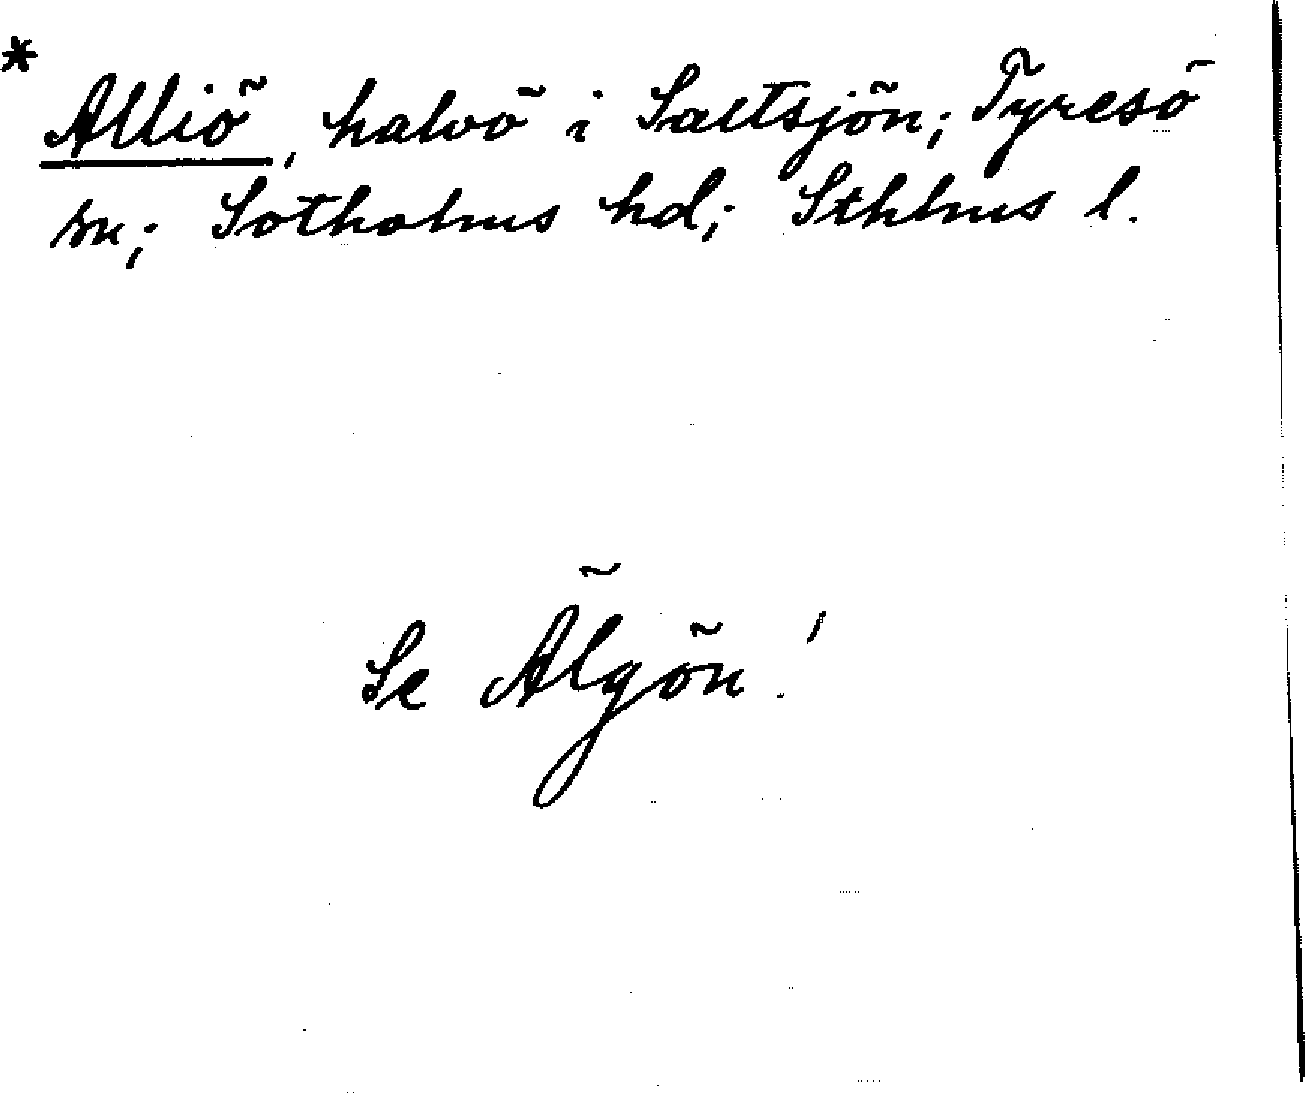 * Alliö, halvö i Saltsjön; Tyresö
sn; Sotholms hd; Sthlms l.
Se Älgön!